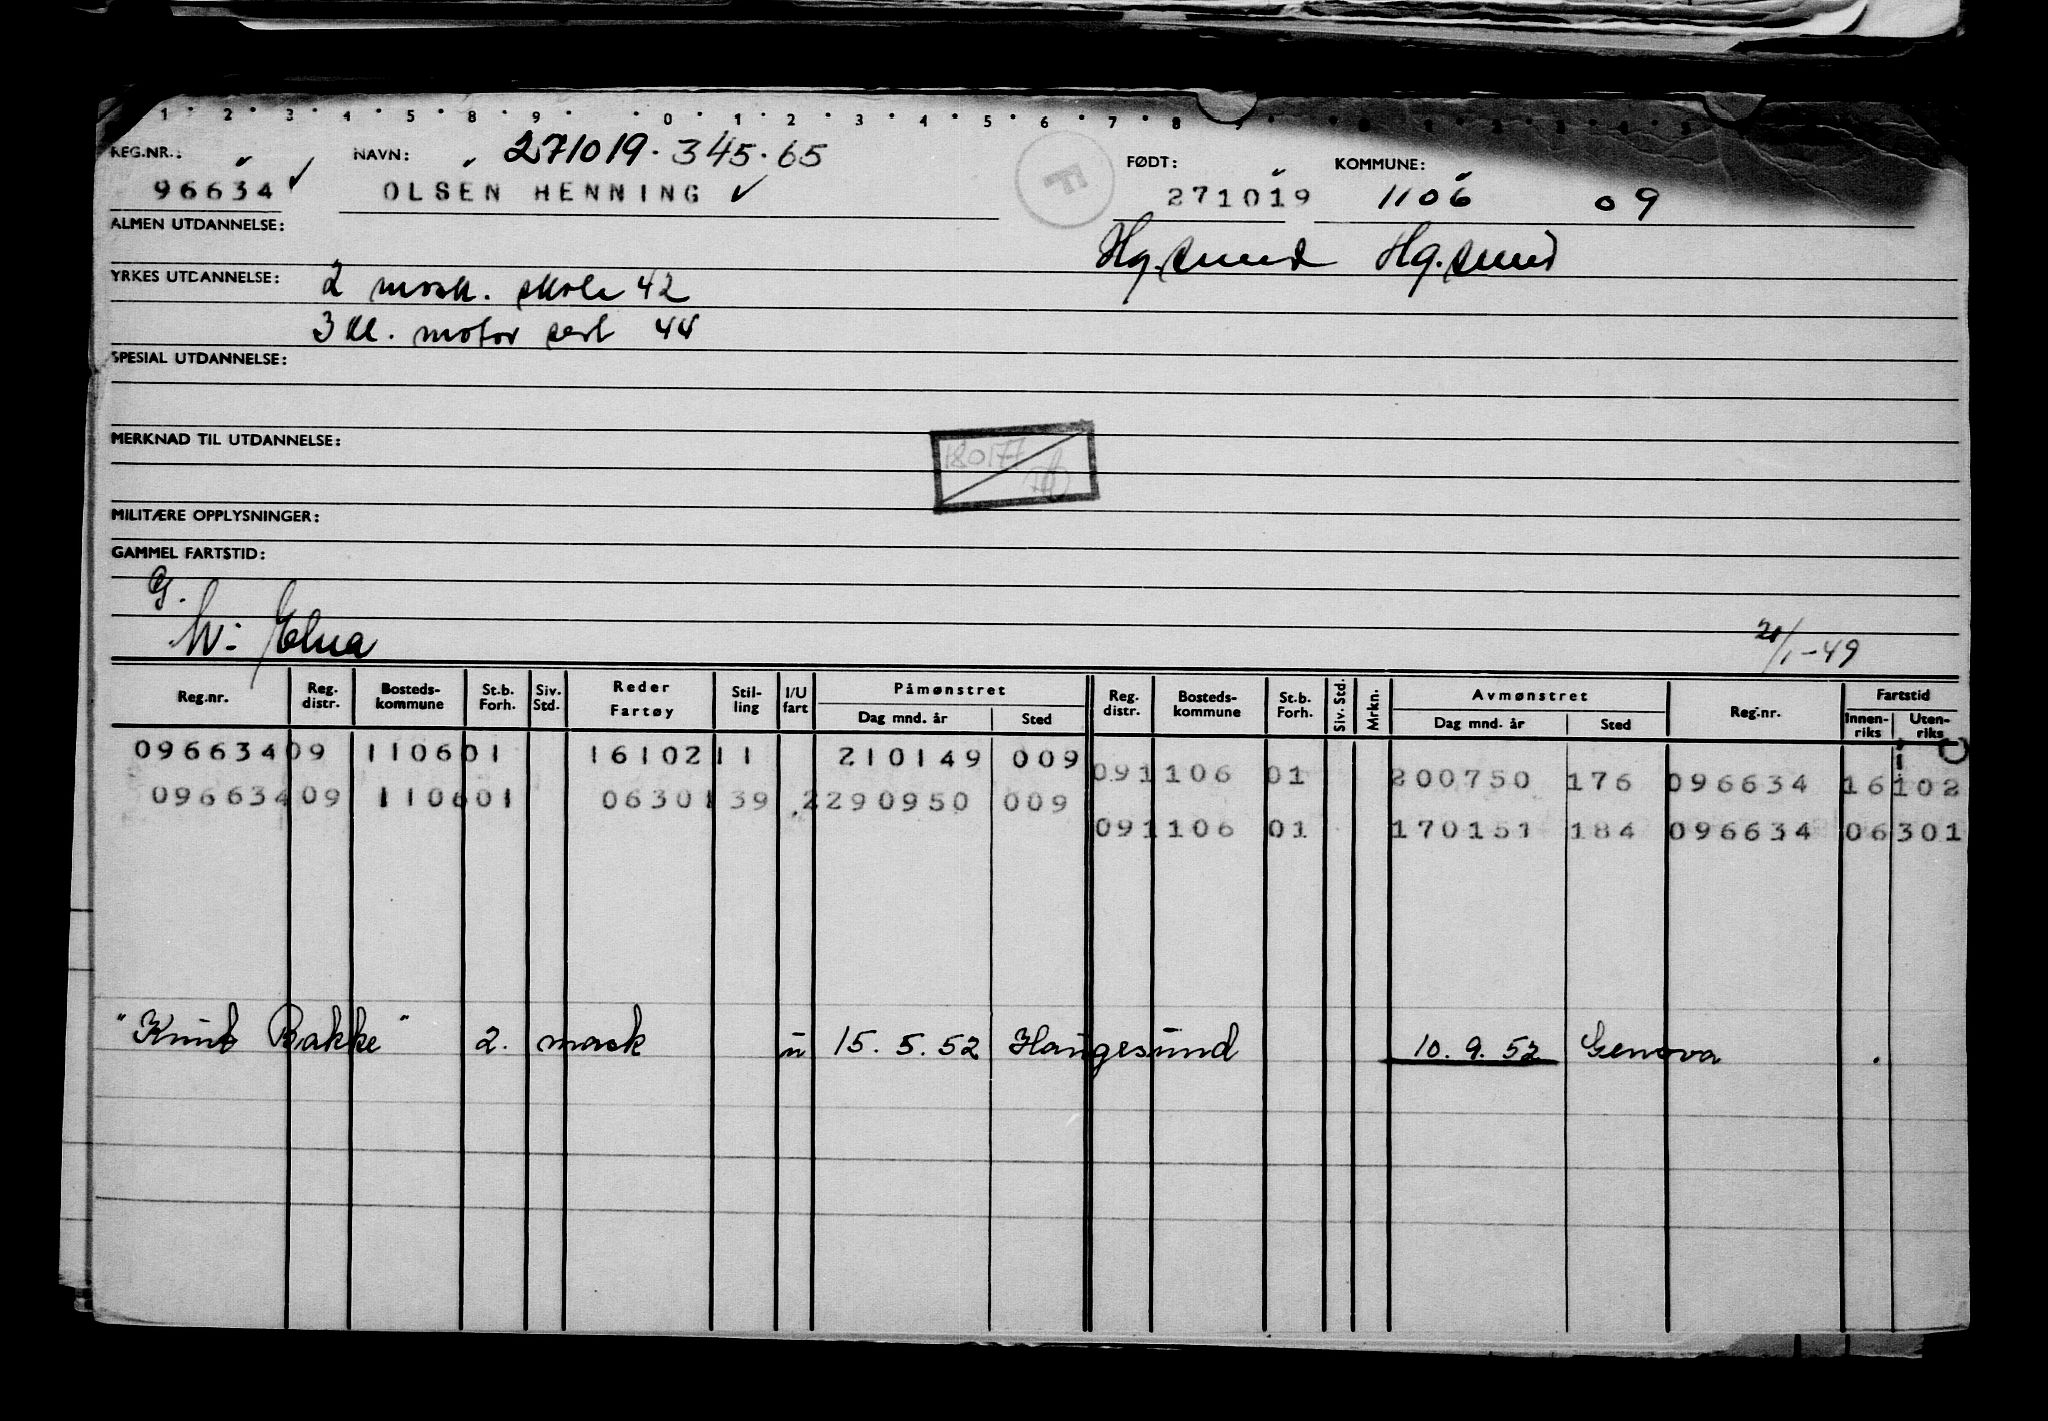 1 2 3 4 5 8 9 0 1 2 3 4 5 6 7 8 9
REG.NR.: NAVN: 271019.345.65 FØDT: KOMMUNE:
96634 OLSEN HENNING 271019 1106 09
F
ALMEN UTDANNELSE: Hg.sund Hg.sund
YRKES UTDANNELSE: 2 mask. skole 42
3 kl. motor sert 44
SPESIAL UTDANNELSE:
MERKNAD TIL UTDANNELSE:
180177
MILITÆRE OPPLYSNINGER:
GAMMEL FARTSTID:
G.
M: Elna 20/1-49
Reg.nr. Reg. distr. Bosteds-kommune St.b. Forh. Siv. Std. Reder Fartøy Stil-ling I/U fart Påmønstret Dag mnd. år Sted Reg. distr. Bosteds-kommune St.b. Forh. Siv. Std. Mrkn. Avmønstret Dag mnd. år Sted Reg.nr. Fartstid Innen-riks Uten-riks
096634 09 1106 01 16102 11 210149 009
09 1106 01 200750 176 096634 16102
096634 09 1106 01 06301 39 2 290950 009
09 1106 01 170151 184 096634 06301
"Knut Bakke" 2. mask u 15.5.52 Haugesund 10.9.52 Genova